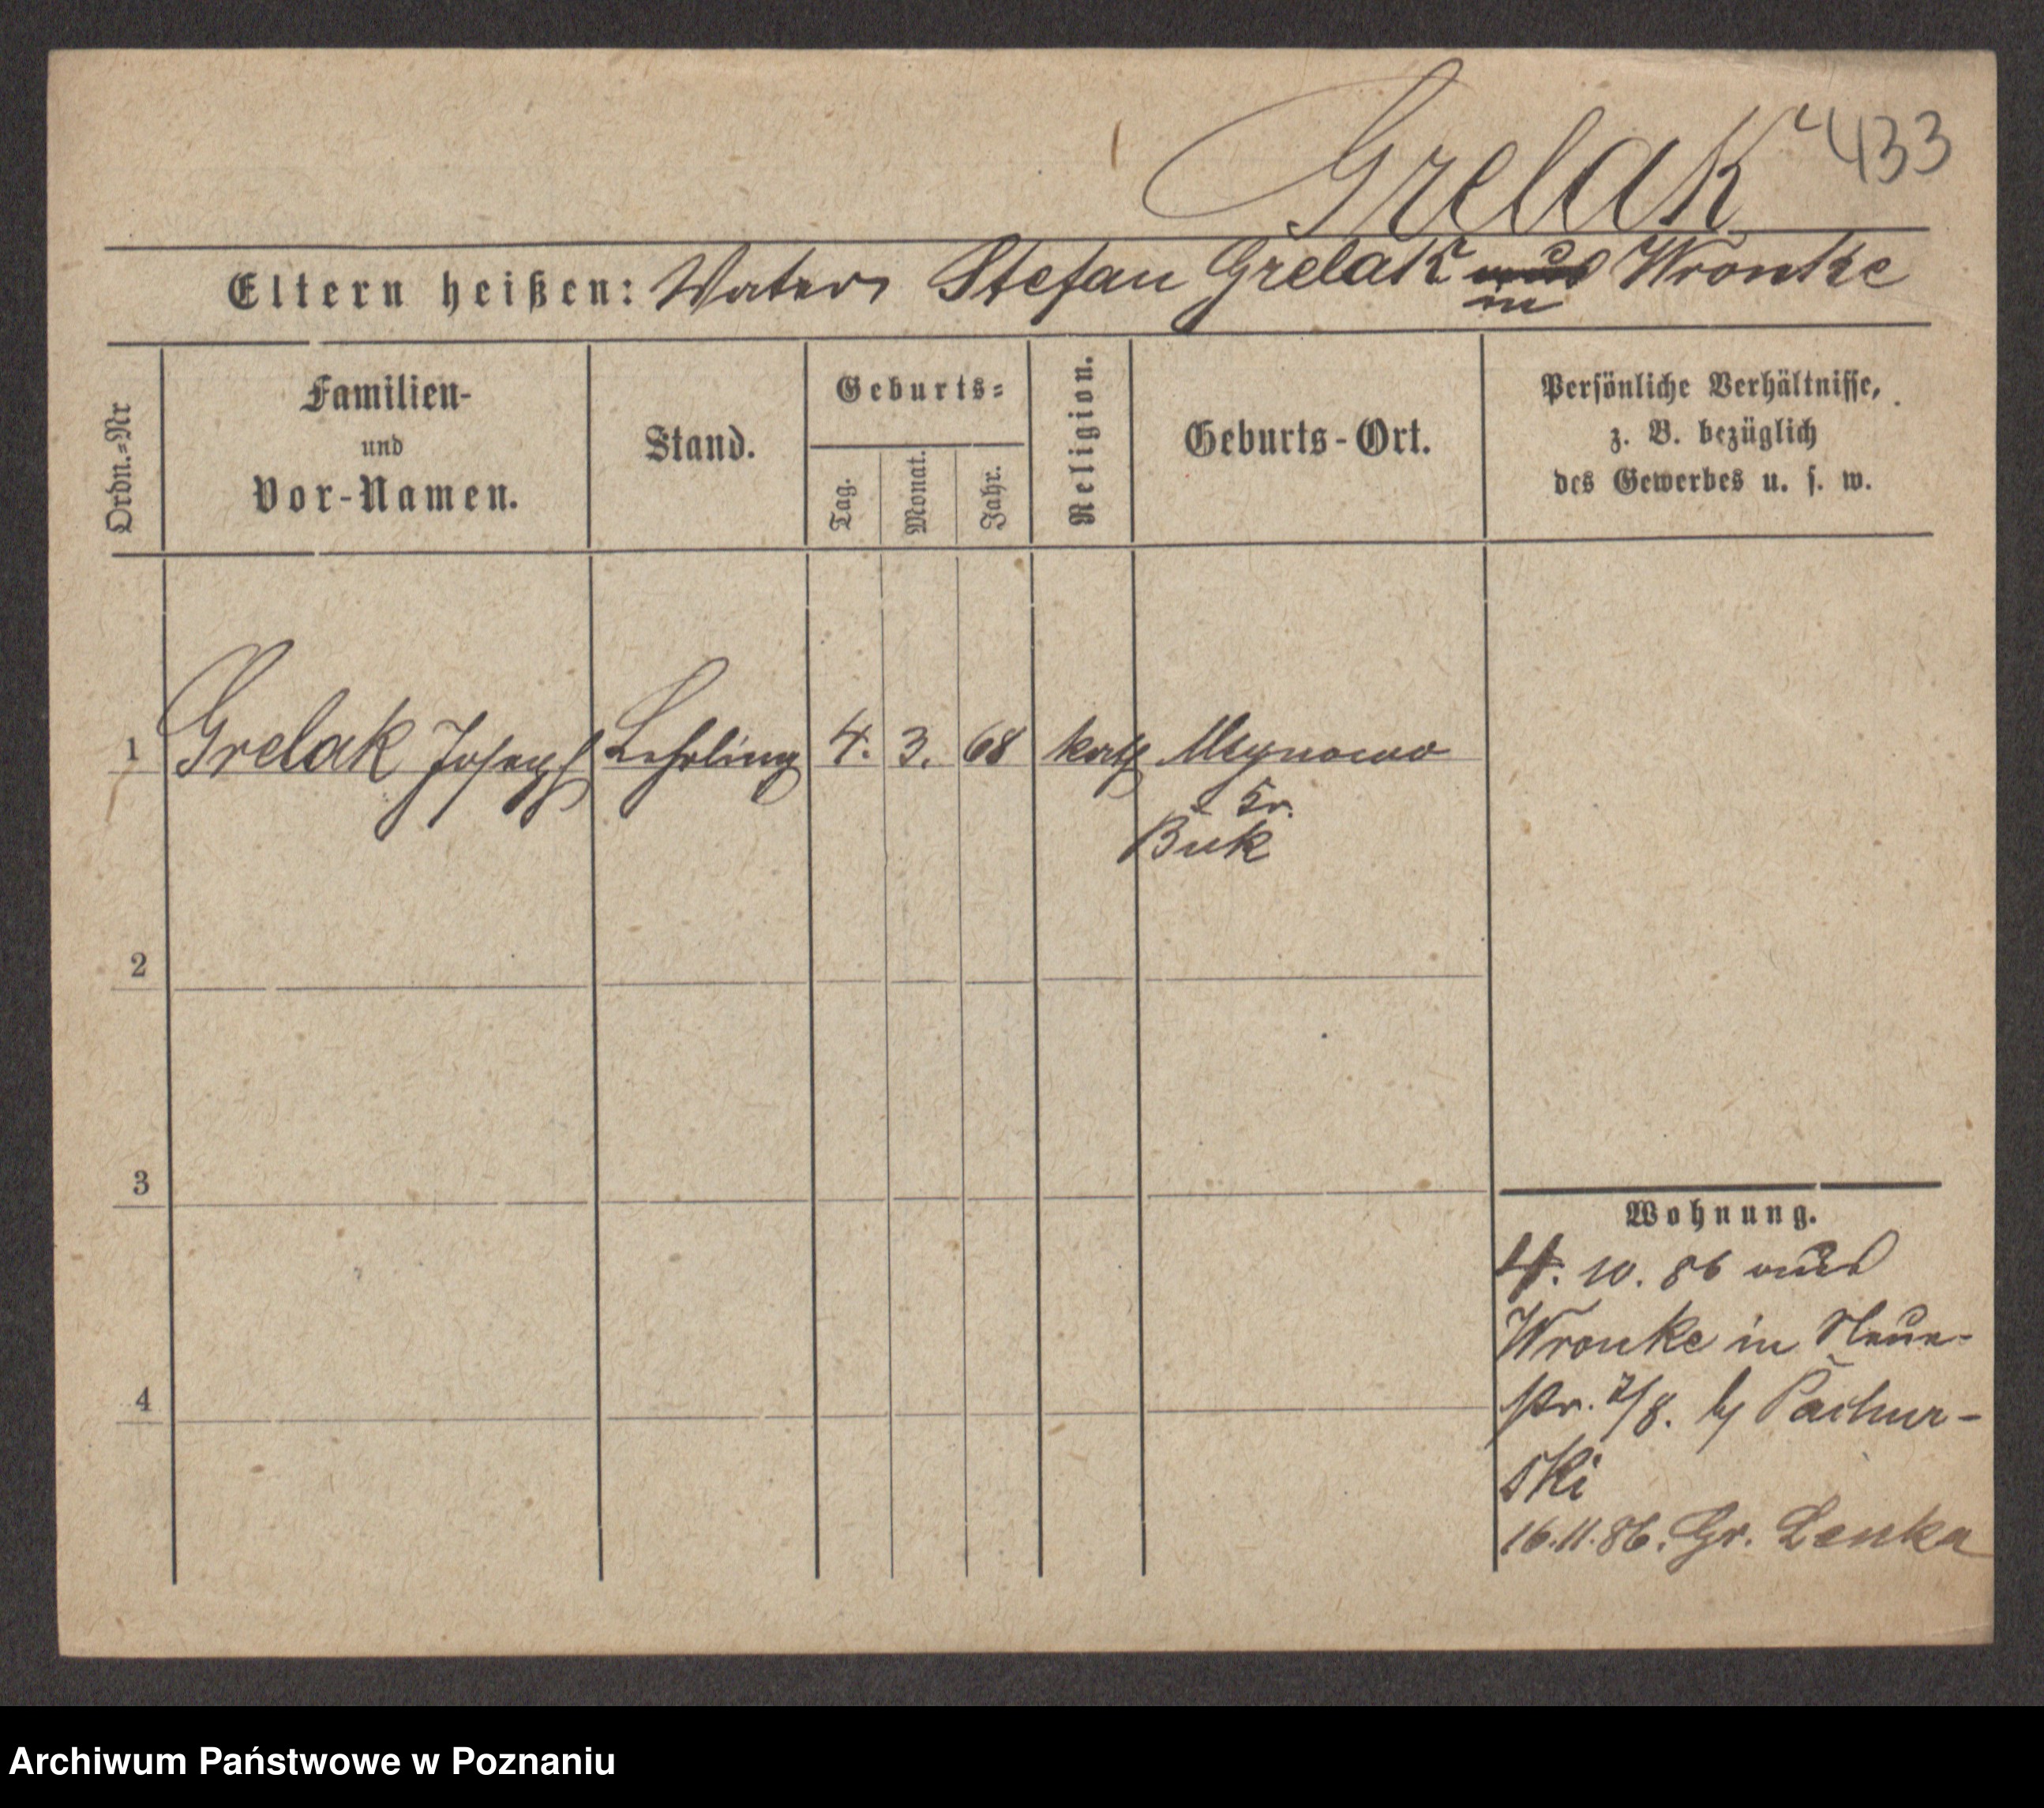 Grelak 433
Eltern heißen: Vater Stefan Grelak aus in Wronke
Ordn.-Nr
Familien-
und
Vor-Namen.
Stand.
Geburts-
Tag.
Monat.
Jahr.
Religion.
Geburts-Ort.
Persönliche Verhältnisse,
z. B. bezüglich
des Gewerbes u. s. w.
1 Grelak Joseph Lehrling 4. 3. 68 kath
Kr.
Buk
2
3
4
Wohnung.
4. 10. 86 aus
Wronke in Neue-
str. 7/8. b/ Pachur-
ski
16.11.86. Gr. Lenka
Archiwum Państwowe w Poznaniu